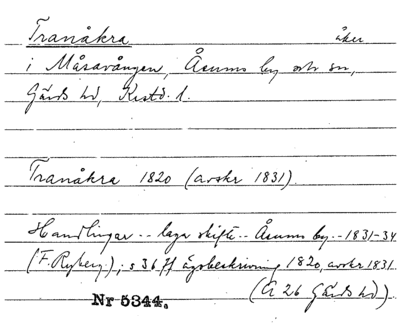 Tranåkra åker
i Måsavången, Åsums by och sn,
Gärds hd, Krstd. l.
Tranåkra 1820 (avskr 1831).
Handlingar -- laga skifte -- Åsums by -- 1831-34
(F. Ryberg), s 36 ff ägobeskrivning 1820, avskr 1831
(Å 26 Gärds hd).
Nr 5344.